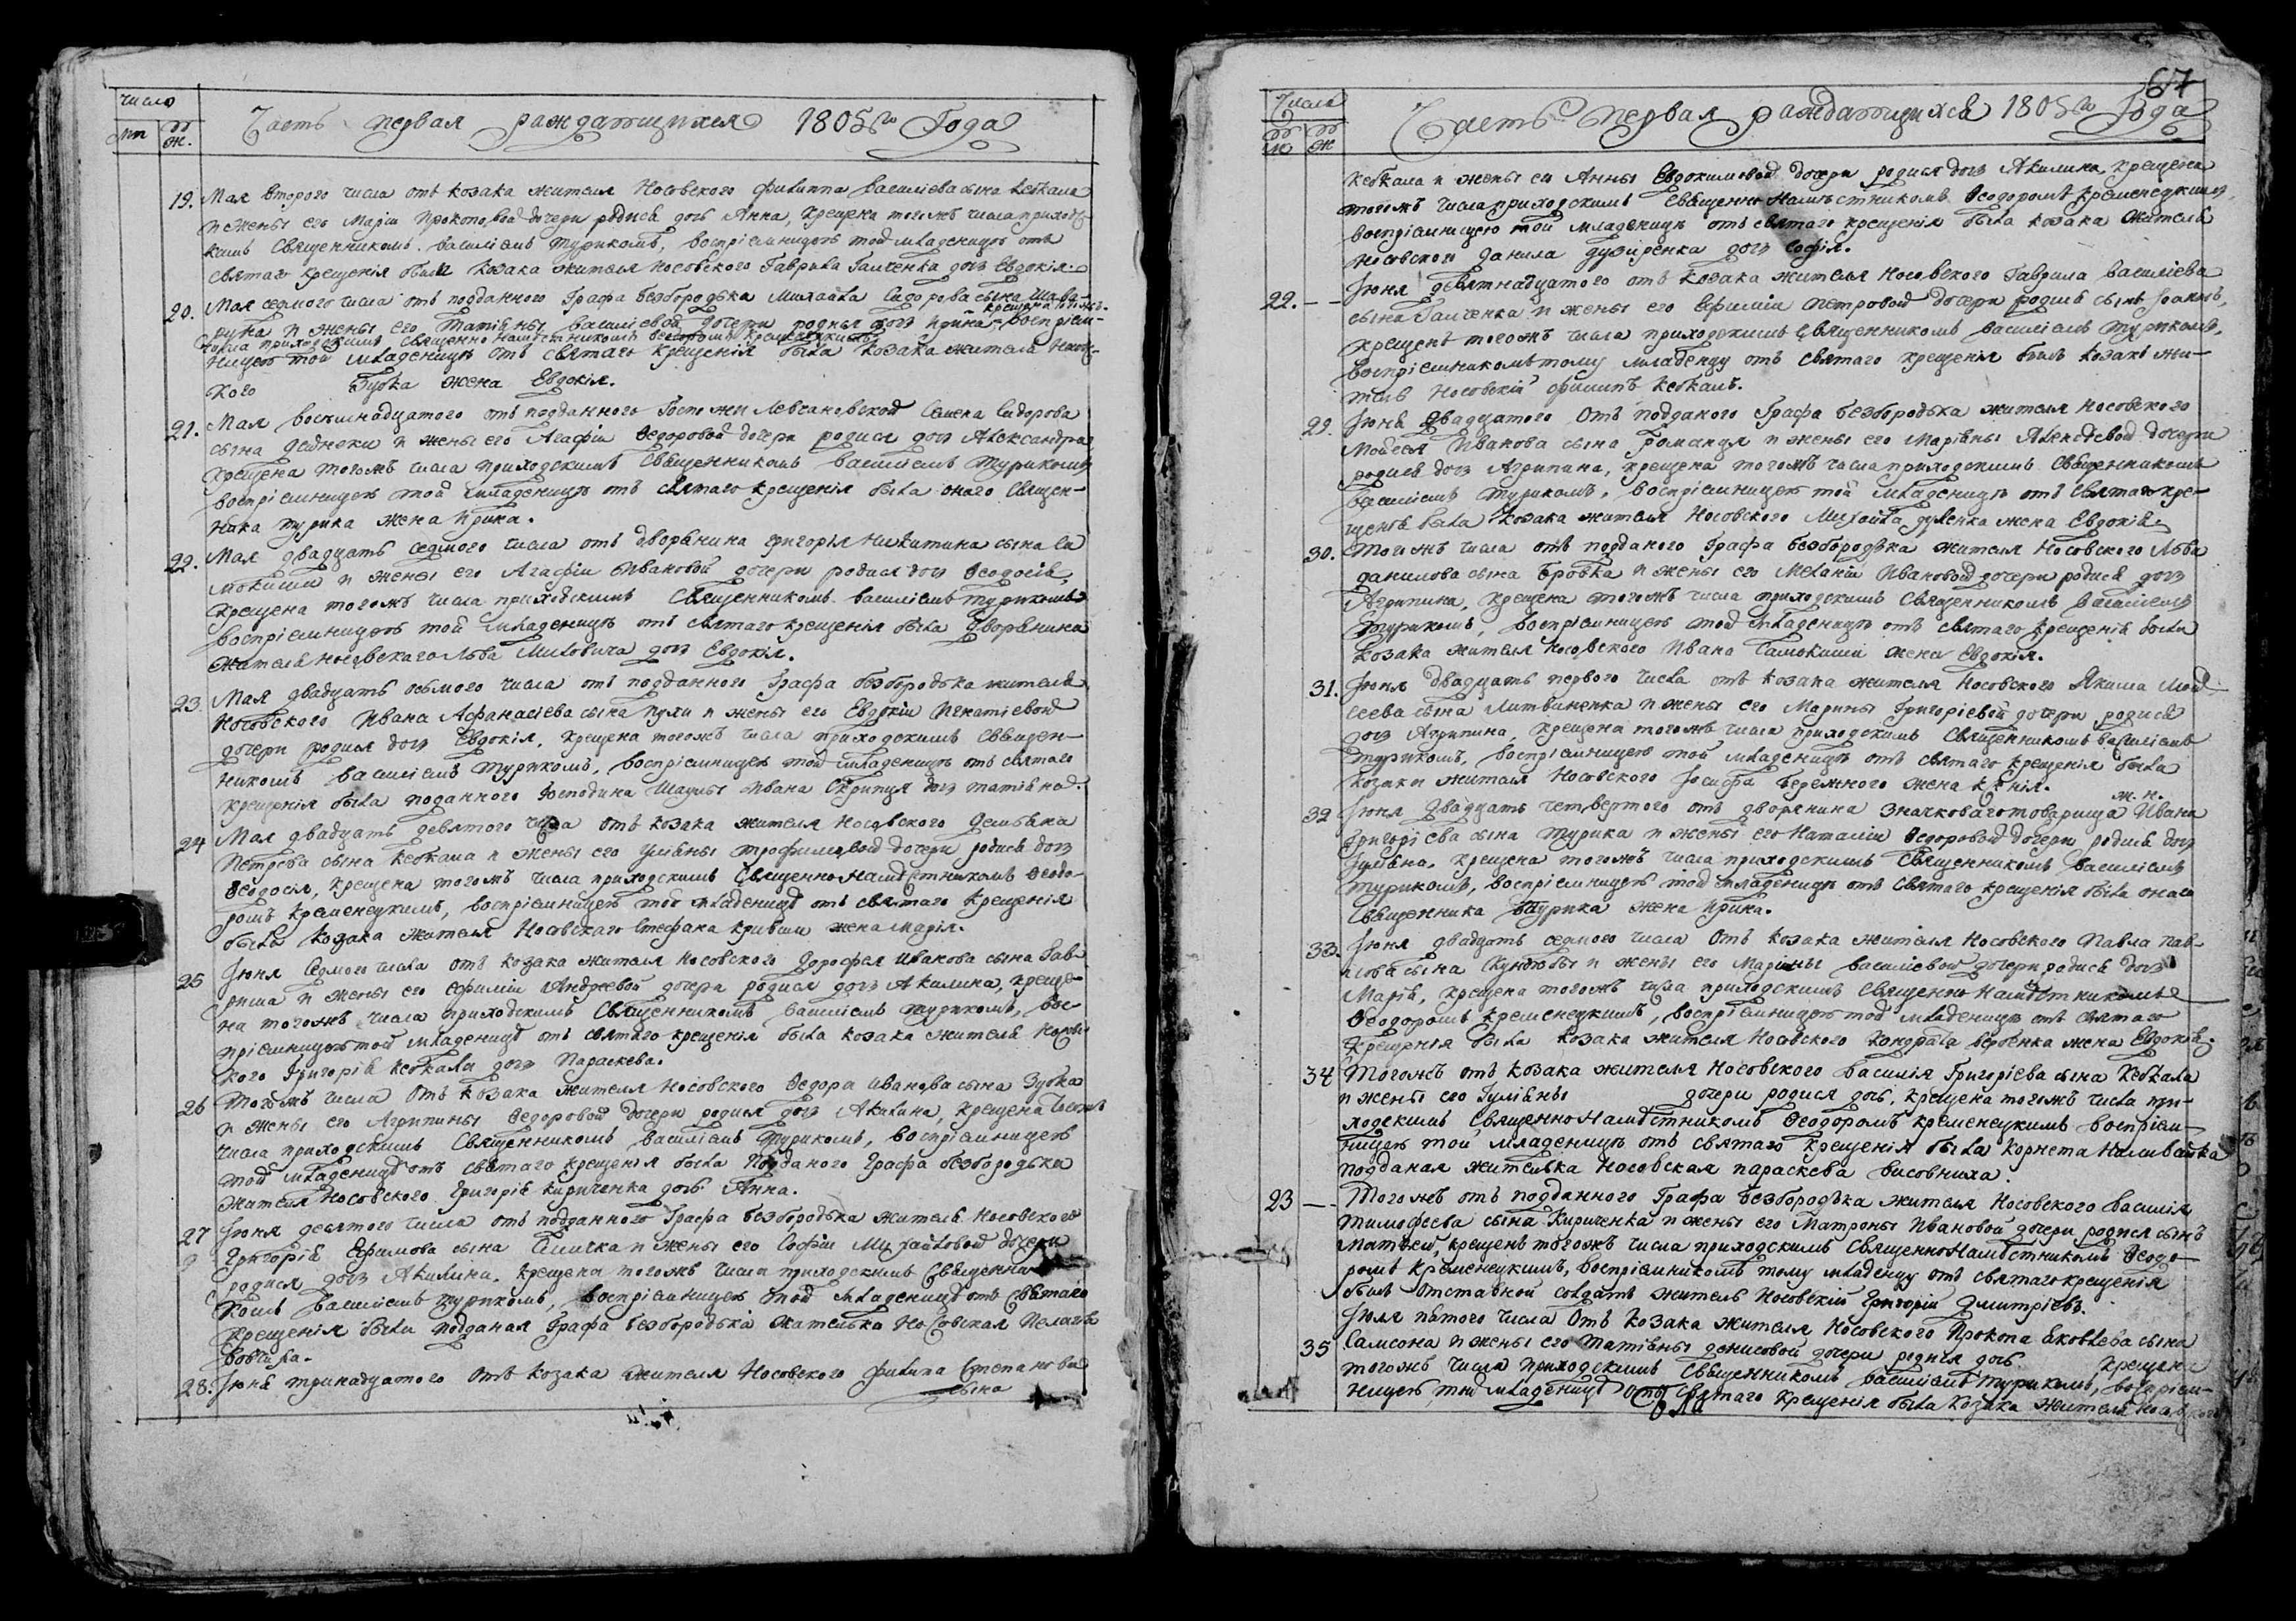 число
мп
ж.
Часть первая раждающихся 1805го Года
19. Мая второго числа отъ козака жителя Носовского Филиппа Василіева сына Кекала
и жены его Маріи Прокоповой дочери родися дочь Анна, крещена тогожъ числа приходс-
кимъ Священникомъ Василіемъ Турикомъ, воспріемницею той младеницѣ отъ
святаго крещенія была козака жителя Носовского Гаврила Галченка дочь Евдокія.
20. Мая седмого числа отъ подданного Графа Безбородька Михайла Сидорова сына Шава-
крещена тогожъ
руна и жены его Татіаны Василіевой дочери родися дочь Ирина воспріем-
числа приходскимъ Священно Намѣстникомъ Ѳеодоромъ Кременецкимъ
ницею той младеницѣ отъ святаго крещенія была козака жителя Носовс-
кого Губка жена Евдокія.
21. Мая восимнадцатого отъ подданного Госпожи Левсановской Семена Сидорова
сына Дейнеки и жены его Агафіи Ѳедоровой дочери родися дочь Александра,
крещена тогожъ числа приходскимъ Священникомъ Василіемъ Турикомъ
воспріемницею той младеницѣ отъ святаго крещенія была оного Священ-
ника Турика жена Ирина.
22. Мая двадцать седмого числа отъ дворянина Григорія Никитина сына Са
мокиши и жены его Агафіи Ивановой дочери родися дочь Ѳеодосія,
крещена тогожъ числа приходскимъ Священникомъ Василіемъ Турикомъ
воспріемницею той младеницѣ отъ святаго крещенія была дворянина
жителя Носовскаго Льва Миловича дочь Евдокія.
23 Мая двадцать осьмого числа отъ подданного Графа Безбородька жителя
Носовского Ивана Афанасіева сына Пухи и жены его Евдокіи Игнатіевой
дочери родися дочь Евдокія, крещена тогожъ числа приходскимъ Священ-
никомъ Василіемъ Турикомъ, воспріемницею той младеницѣ отъ святаго
крещенія была поданного Господина Шаулы Ивана Скрипця дочь Татіана.
24 Мая двадцать девятого числа отъ козака жителя Носовского Демьяна
Петрова сына Кекала и жены его Уліяны Трофимовой дочери родися дочь
Ѳеодосія, крещена тогожъ числа приходскимъ Священно Намѣстникомъ Ѳеодо-
ромъ Кременецкимъ, воспріемницею той младеницѣ отъ святаго крещенія
была козака жителя Носовскаго Стефана Кривши жена Марія.
25 Іюня седмого числа отъ козака жителя Носовского Дорофея Иванова сына Гав-
риша и жены его Ефиміи Андреевой дочери родися дочь Акилина, креще-
на тогожъ числа приходскимъ Священникомъ Василіемъ Турикомъ, вос-
пріемницею той младеницѣ отъ святаго крещенія была козака жителя Носовс
кого Григорія Кекала дочь Параскева.
26 Тогожъ числа отъ козака жителя Носовского Ѳедора Иванова сына Зубка
и жены его Агрипины Ѳедоровой дочери родися дочь Акилина, крещена тогожъ
числа приходскимъ Священникомъ Василіемъ Турикомъ, воспріемницею
той младеницѣ отъ святаго крещенія была Подданого Графа Безбородька
жителя Носовского Григорія Кириченка дочь Анна.
27 Іюня девятого числа отъ подданного Графа Безбородька жителя Носовского
Григорія Ефимова сына Симчка и жены его Софіи Михайловой дочери
родися дочь Акилина. крещена тогожъ числа приходскимъ Священни-
комъ Василіемъ Турикомъ, воспріемницею той младеницѣ отъ святаго
крещенія была подданая Графа Безбородька жителька Носовская Пелагія

28. Іюня тринадцатого отъ козака жителя Носовского Филипа Степанова
сына
67
Число
м ж
Часть первая раждающихся 1805го Года
Кекала и жены его Анны Евдокимовой дочери родися дочь Акилина, крещена
тогожъ числа приходскимъ Священно Намѣстникомъ Ѳеодоромъ Кременецкимъ,
воспріемницею той младеницѣ отъ святаго крещенія была козака жителя
Носовского Данила Дузиренка дочь Софія.
22. — Іюня девятнадцатого отъ козака жителя Носовского Гаврила Василіева
сына Галченка и жены его Ефиміи Петровой дочери родися сынъ Іоаннъ,
крещенъ тогожъ числа приходскимъ Священникомъ Василіемъ Турикомъ,
воспріемникомъ тому младенцу отъ святаго крещенія былъ козакъ жи-
тель Носовскій Филипъ Кекалъ.
29. Іюня двадцатого отъ подданого Графа Безбородька жителя Носовского
Мойсея Иванова сына Романця и жены его Маріяны Алексѣевой дочери
родися дочь Агрипина, крещена тогожъ числа приходскимъ Священникомъ
Василіемъ Турикомъ, воспріемницею той младеницѣ отъ святаго кре-
щенія была козака жителя Носовского Михайла Дуленка жена Евдокія.
30. Тогожъ числа отъ подданого Графа Безбородька жителя Носовского Льва
Данилова сына Бробка и жены его Меланіи Ивановой дочери родися дочь
Агрипина, крещена тогожъ числа приходскимъ Священникомъ Василіемъ
Турикомъ, воспріемницею той младеницѣ отъ святаго крещенія была
козака жителя Носовского Ивана Самокиши жена Евдокія.
31. Іюня двадцать первого числа отъ козака жителя Носовского Якима Мой-
сеева сына Литвиненка и жены его Марины Григоріевой дочери родися
дочь Агрипина, крещена тогожъ числа приходскимъ Священникомъ Василіемъ
Турикомъ, воспріемницею той младеницѣ отъ святаго крещенія была
козака жителя Носовского Іосифа Бережного жена Ксенія.
ж. н.
32 Іюня двадцать четвертого отъ дворянина значковаго товарища Ивана
Григоріева сына Турика и жены его Наталіи Ѳедоровой дочери родися дочь
Іуліяна, крещена тогожъ числа приходскимъ Священникомъ Василіемъ
Турикомъ, воспріемницею той младеницѣ отъ святаго крещенія была онаго
Священника Турика жена Ирина.
33. Іюня двадцать седмого числа отъ козака жителя Носовского Павла Пав-
лова сына и жены его Маріны Василіевой дочери родися дочь
Марія, крещена тогожъ числа приходскимъ Священно Намѣстникомъ
Ѳеодоромъ Кременецкимъ, воспріемницею той младеницѣ отъ святаго
крещенія была козака жителя Носовского Кондрата Вербенка жена Евдокія.
34 Тогожъ отъ козака жителя Носовского Василія Григоріева сына Кекала
и жены его Іуліяны дочери родися дочь, крещена тогожъ числа при-
ходскимъ Священно Намѣстникомъ Ѳеодоромъ Кременецкимъ воспріем-
ницею той младеницѣ отъ святаго крещенія была корнета Наливайка
подданая жителька Носовская Параскева Висовниха.
23 — Тогожъ отъ подданного Графа Безбородька жителя Носовского Василія
Тимофеева сына Кириченка и жены его Матроны Ивановой дочери родися сынъ
Матвей, крещенъ тогожъ числа приходскимъ Священно Намѣстникомъ Ѳеодо-
ромъ Кременецкимъ, воспріемникомъ тому младенцу отъ святаго крещенія
былъ отставной солдатъ житель Носовскій Григорій Дмитріевъ.
35 Іюля пятого числа отъ козака жителя Носовского Прокопа Яковлева сына
Самсона и жены его Татіаны Денисовой дочери родися дочь крещена
тогожъ числа приходскимъ Священникомъ Василіемъ Турикомъ, воспріем-
ницею той младеницѣ отъ святаго крещенія была козака жителя Носовского